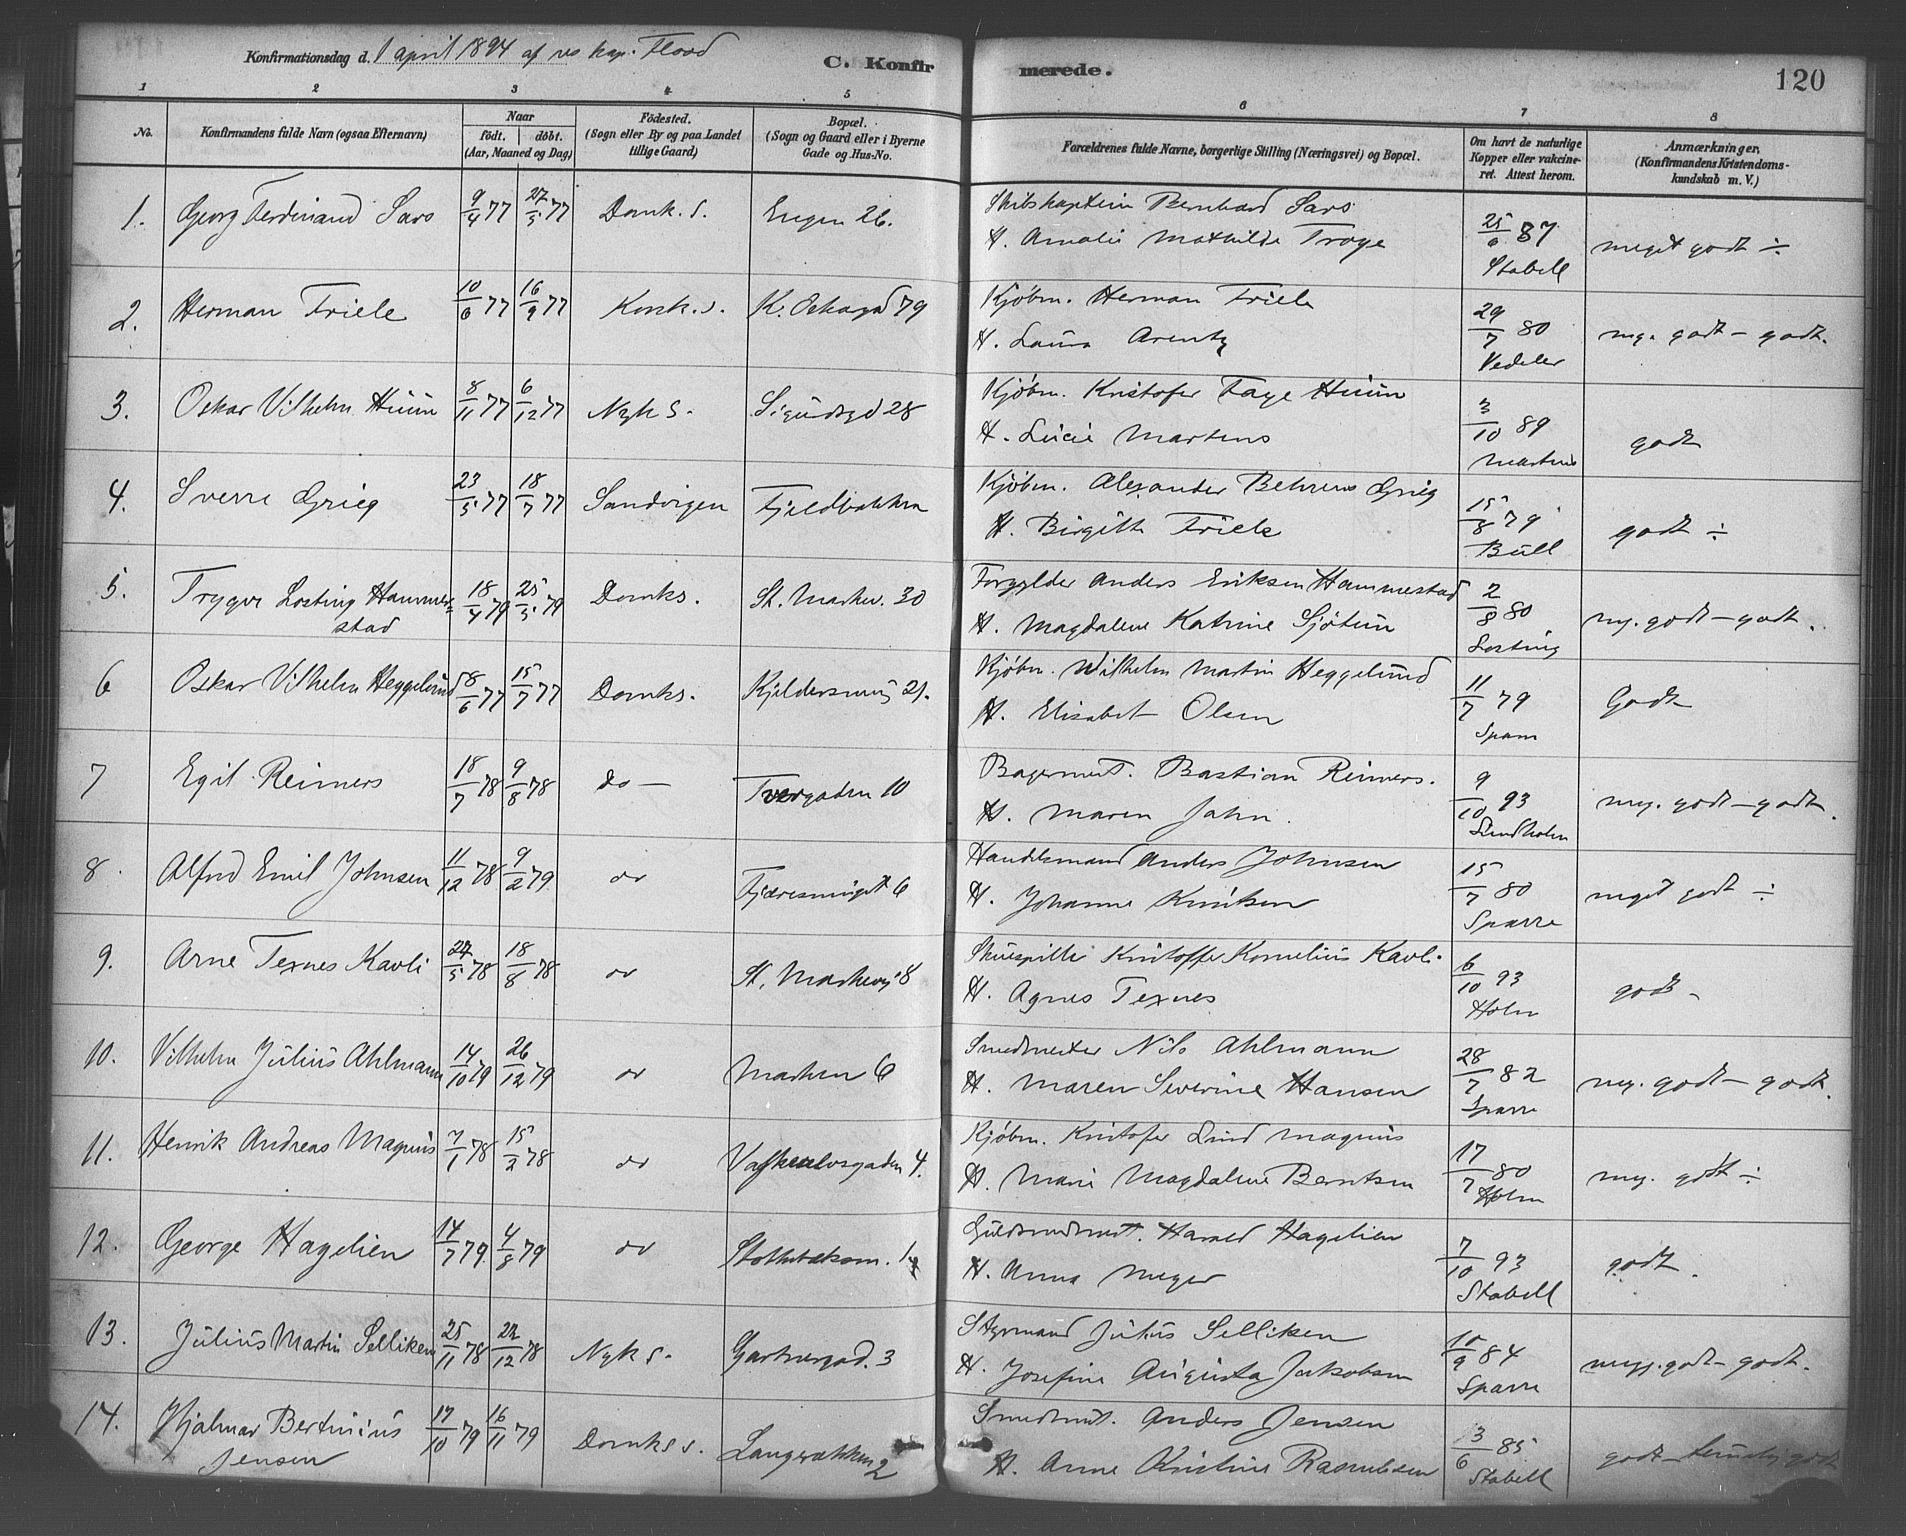 Konfirmationsdag d. 1 april 1894 af res kap. Flood
C. Konfirmerede.
120
1 2 3 4 5 6 7 8
No.
Konfirmandens fulde Navn (ogsaa Efternavn)
Naar
födt. döbt.
(Aar, Maaned og Dag)
Födested.
(Sogn eller By og paa Landet
tillige Gaard)
Bopæl.
(Sogn og Gaard eller i Byerne
Gade og Hus-No.
Forældrenes fulde Navne, borgerlige Stilling (Næringsvei) og Bopæl.
Om havt de naturlige
Kopper eller vakcine-
ret. Attest herom.
Anmærkninger,
(Konfirmandens Kristendoms-
kundskab m. V.)
1. Georg Ferdinand Sars 9/4 77 27/5 77 Domk. s. Engen 26.
Skibskaptein Bernhard Sars
H. Amalie Mathilde Troye
25/6 87
Stabell
meget godt ÷
2. Herman Friele 10/6 77 16/9 77 Korsk. s. K. Oskarsgd 79
Kjöbm. Herman Friele
H. Laura Arentz
29/7 80
Vedeler
meg. godt - godt.
3. Oskar Vilhelm Huun 8/11 77 6/12 77 Nyk S. Sigurdsgd 28
Kjöbm. Kristofer Faye Huun
H. Lucie Martens
3/10 89
Martens
godt
4. Sverre Grieg 23/5 77 18/7 77 Sandvigen Fjeldbakken
Kjöbm. Alexander Behrens Grieg
H. Birgitte Friele
15/8 79
Bull
godt ÷
5. Trygve Losting Hammer=
stad
18/4 79 25/5 79 Domks. St. Markev. 30
Forgylder Anders Eriksen Hammerstad
H. Magdalene Katrine Sjötun
2/8 80
Losting
meg. godt - godt.
6 Oskar Vilhelm Heggelund 8/6 77 15/7 77 Domks. Kjeldersmug 21.
Kjöbm. Wilhelm Martin Heggelund
H. Elisabet Olsen
11/7 79
Godt
7 Egil Reimers 18/7 78 9/8 78 do - Tvergaden 10
Bagermest. Bastian Reimers.
H. Maren Jahn.
9/10 93
Lindholm
meg. godt - godt.
8. Alfred Emil Johnsen 11/12 78 9/2 79 do Fjæresmuget 6
Handelsmand Anders Johnsen
H. Johanne Knutsen
15/7 80
Sparre
meget godt ÷
9. Arne Texnes Kavli 27/5 78 18/8 78 do St. Markevej 8
Skuespiller Kristoffer Kornelius Kavli.
H. Agnes Texnes
6/10 93
Holm
godt -
10. Vilhelm Julius Ahlmann 14/10 79 26/12 79 do Marken 6
Smedmester Nils Ahlmann
H. Maren Severine Hansen
28/7 82
Sparre
meg. godt - godt.
11. Henrik Andreas Magnus 7/1 78 15/2 78 do Vaskerelvsgaden 4.
Kjöbm. Kristofer Lund Magnus
H. Marie Magdalene Berntsen
17/7 80
Holm
meg. godt ÷
12. George Hagelien 14/7 79 4/8 79 do
Guldsmedmest. Harald Hagelien
H. Anna Meyer
7/10 93
Stabell
godt.
13. Julius Martin Selliken 25/11 78 27/12 78 Nyk s. Gartnergad. 3
Styrmand Julius Selliken
H. Josefine Augusta Jakobsen
10/9 84
Sparre
meg. godt - godt.
14. Hjalmar Bertinius
Jensen
17/10 79 16/11 79 Domks s. Langebakken 2
Smedmest. Anders Jensen
H. Anne Kristine Rasmussen
3/6 85
Stabell
godt - temmelig godt